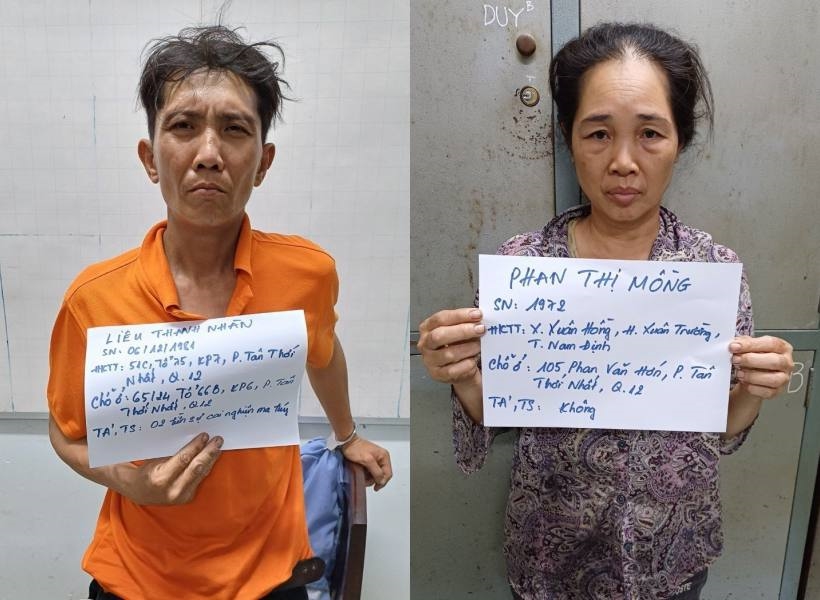 LIÊU THANH NHÀN
SN: 06/12/1981
HKTT: 51C, Tổ 75, KP7, P. Tân Thới
Nhất, Q.12
Chỗ ở: 65/24, Tổ 66B, KP6, P. Tân
Thới Nhất, Q.12
TA', TS: 02 tiền sự cai nghiện ma túy
DUY B
PHAN THỊ MÔNG
SN: 1972
HKTT: X. Xuân Hồng, H. Xuân Trường,
T. Nam Định
Chỗ ở: 105, Phan Văn Hớn, P. Tân
Thới Nhất, Q.12
TA', TS: Không
B